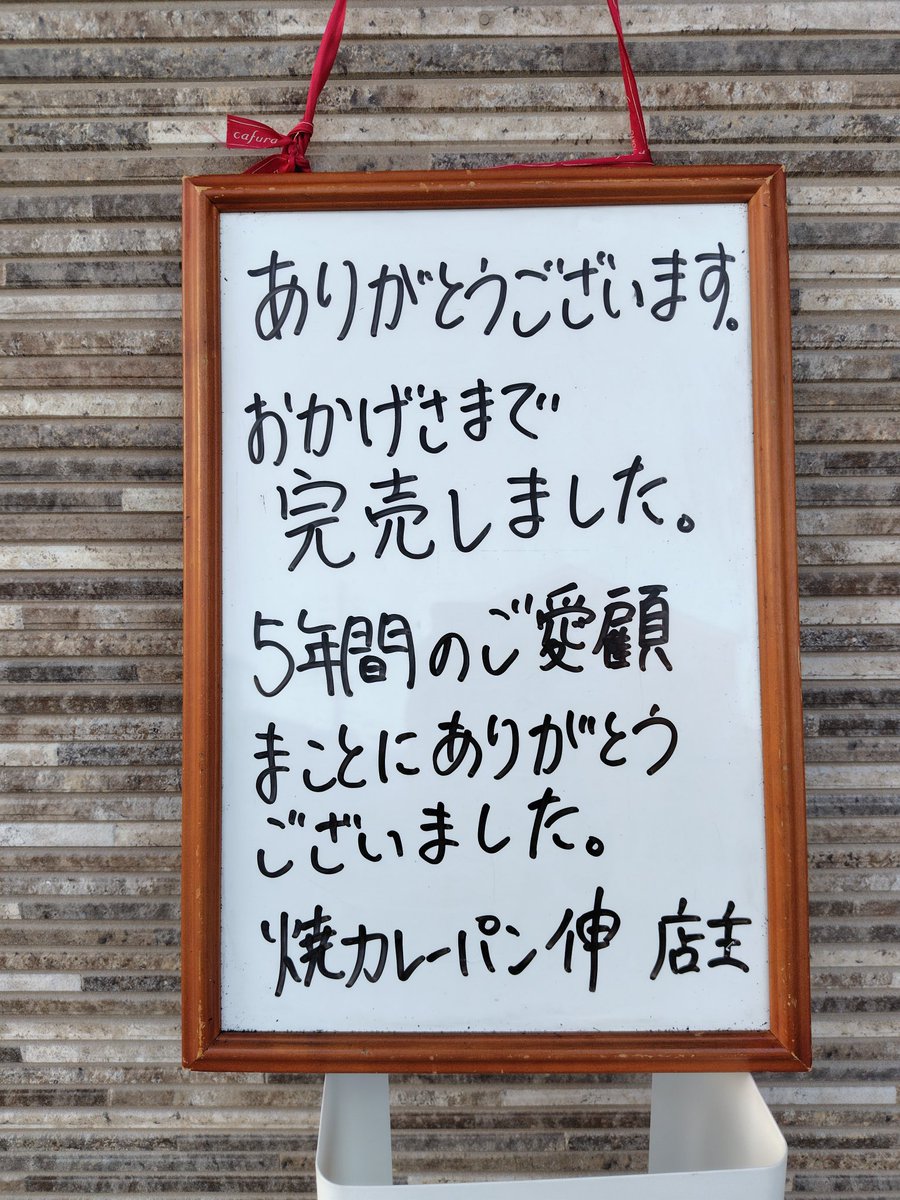 cafura
ありがとうございます。
おかげさまで
完売しました。
5年間のご愛顧
まことにありがとう
ございました。
焼カレーパン伸 店主